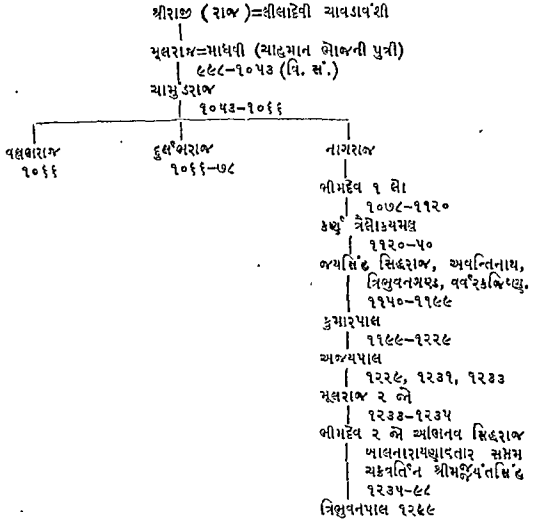 શ્રીરાજી (રાજ)=લીલાદેવી ચાવડાવંશી
મૂલરાજ=માધવી (ચાહમાન ભોજની પુત્રી)
૯૯૮-૧૦૫૩ (વિ. સં.)
ચામુંડરાજ
૧૦૫૩-૧૦૬૬
વલ્લભરાજ દુર્લભરાજ નાગરાજ
૧૦૬૬ ૧૦૬૬-૭૮
ભીમદેવ ૧ લો
૧૦૭૮-૧૧૨૦
કર્ણ ત્રૈલોક્યમલ્લ
૧૧૨૦-૫૦
જયસિંહ સિદ્ધરાજ, અવન્તિનાથ,
ત્રિભુવનગણ્ડ, વર્વરકજિષ્ણુ.
૧૧૫૦-૧૧૯૯
કુમારપાલ
૧૧૯૯-૧૨૨૯
અજયપાલ
૧૨૨૯, ૧૨૩૧, ૧૨૩૩
મૂલરાજ ૨ જો
૧૨૩૩-૧૨૩૫
ભીમદેવ ૨ જો અભિનવ સિદ્ધરાજ
બાલનારાયણાવતાર સપ્તમ
ચક્રવર્તિન
૧૨૩૫-૯૮
ત્રિભુવનપાલ ૧૨૯૯